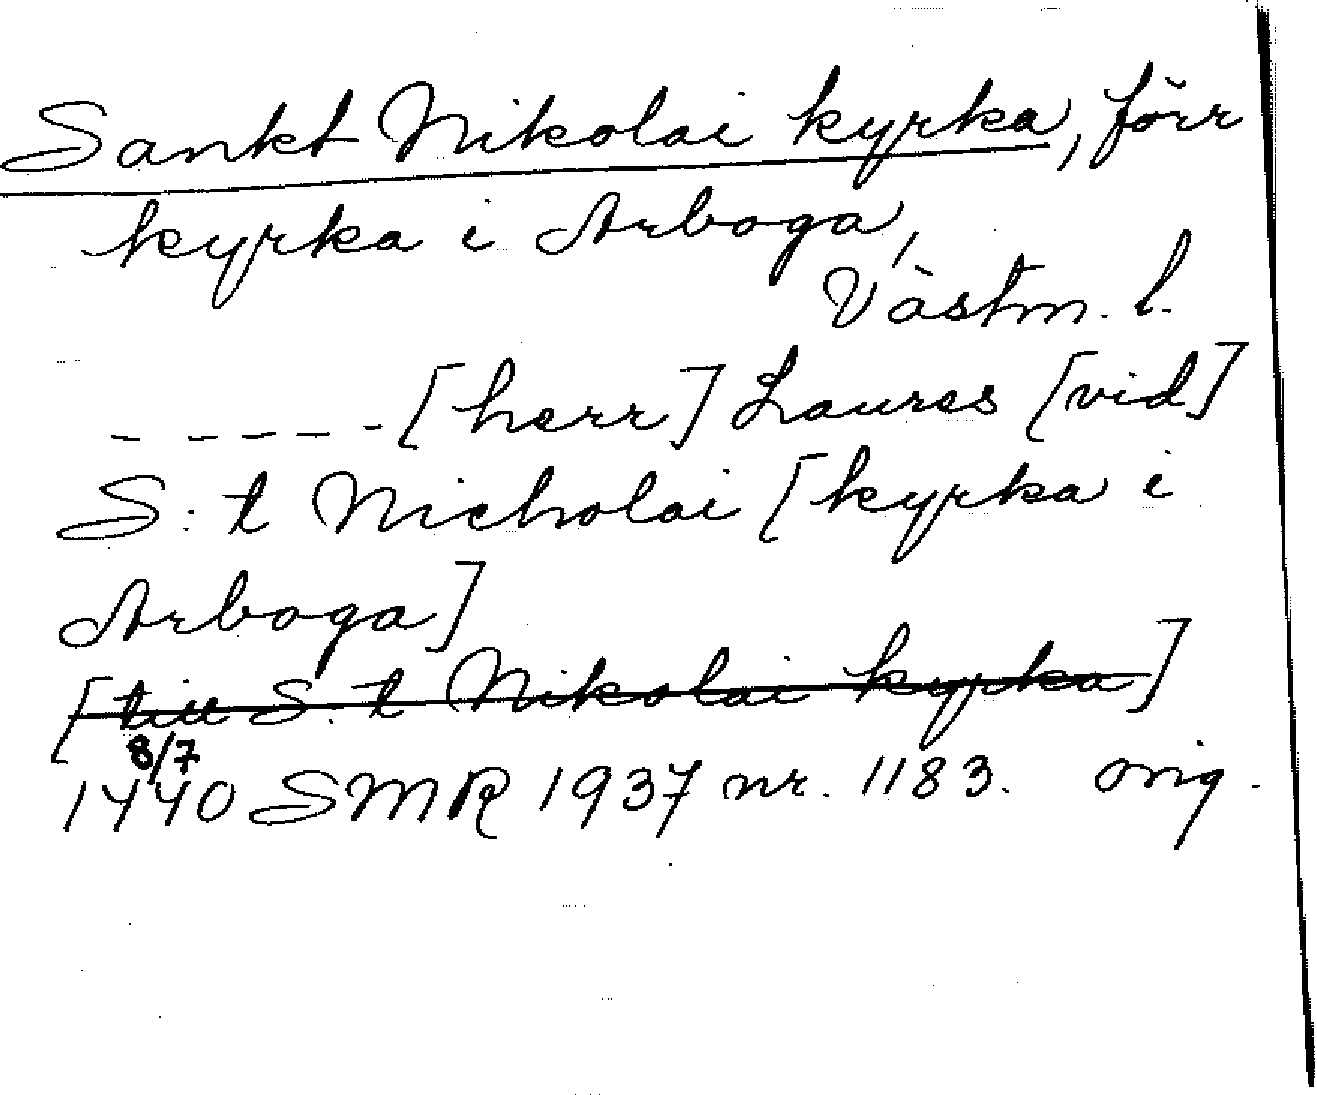 Sankt Nikolai kyrka, förr
kyrka i Arboga,
Västm. l.
- - - - - - [herr] Laures [vid]
S:t Nicholai [kyrka i
Arboga]
[till S:t Nikolai kyrka]
8/7
1440 SMR 1937 nr. 1183. orig.